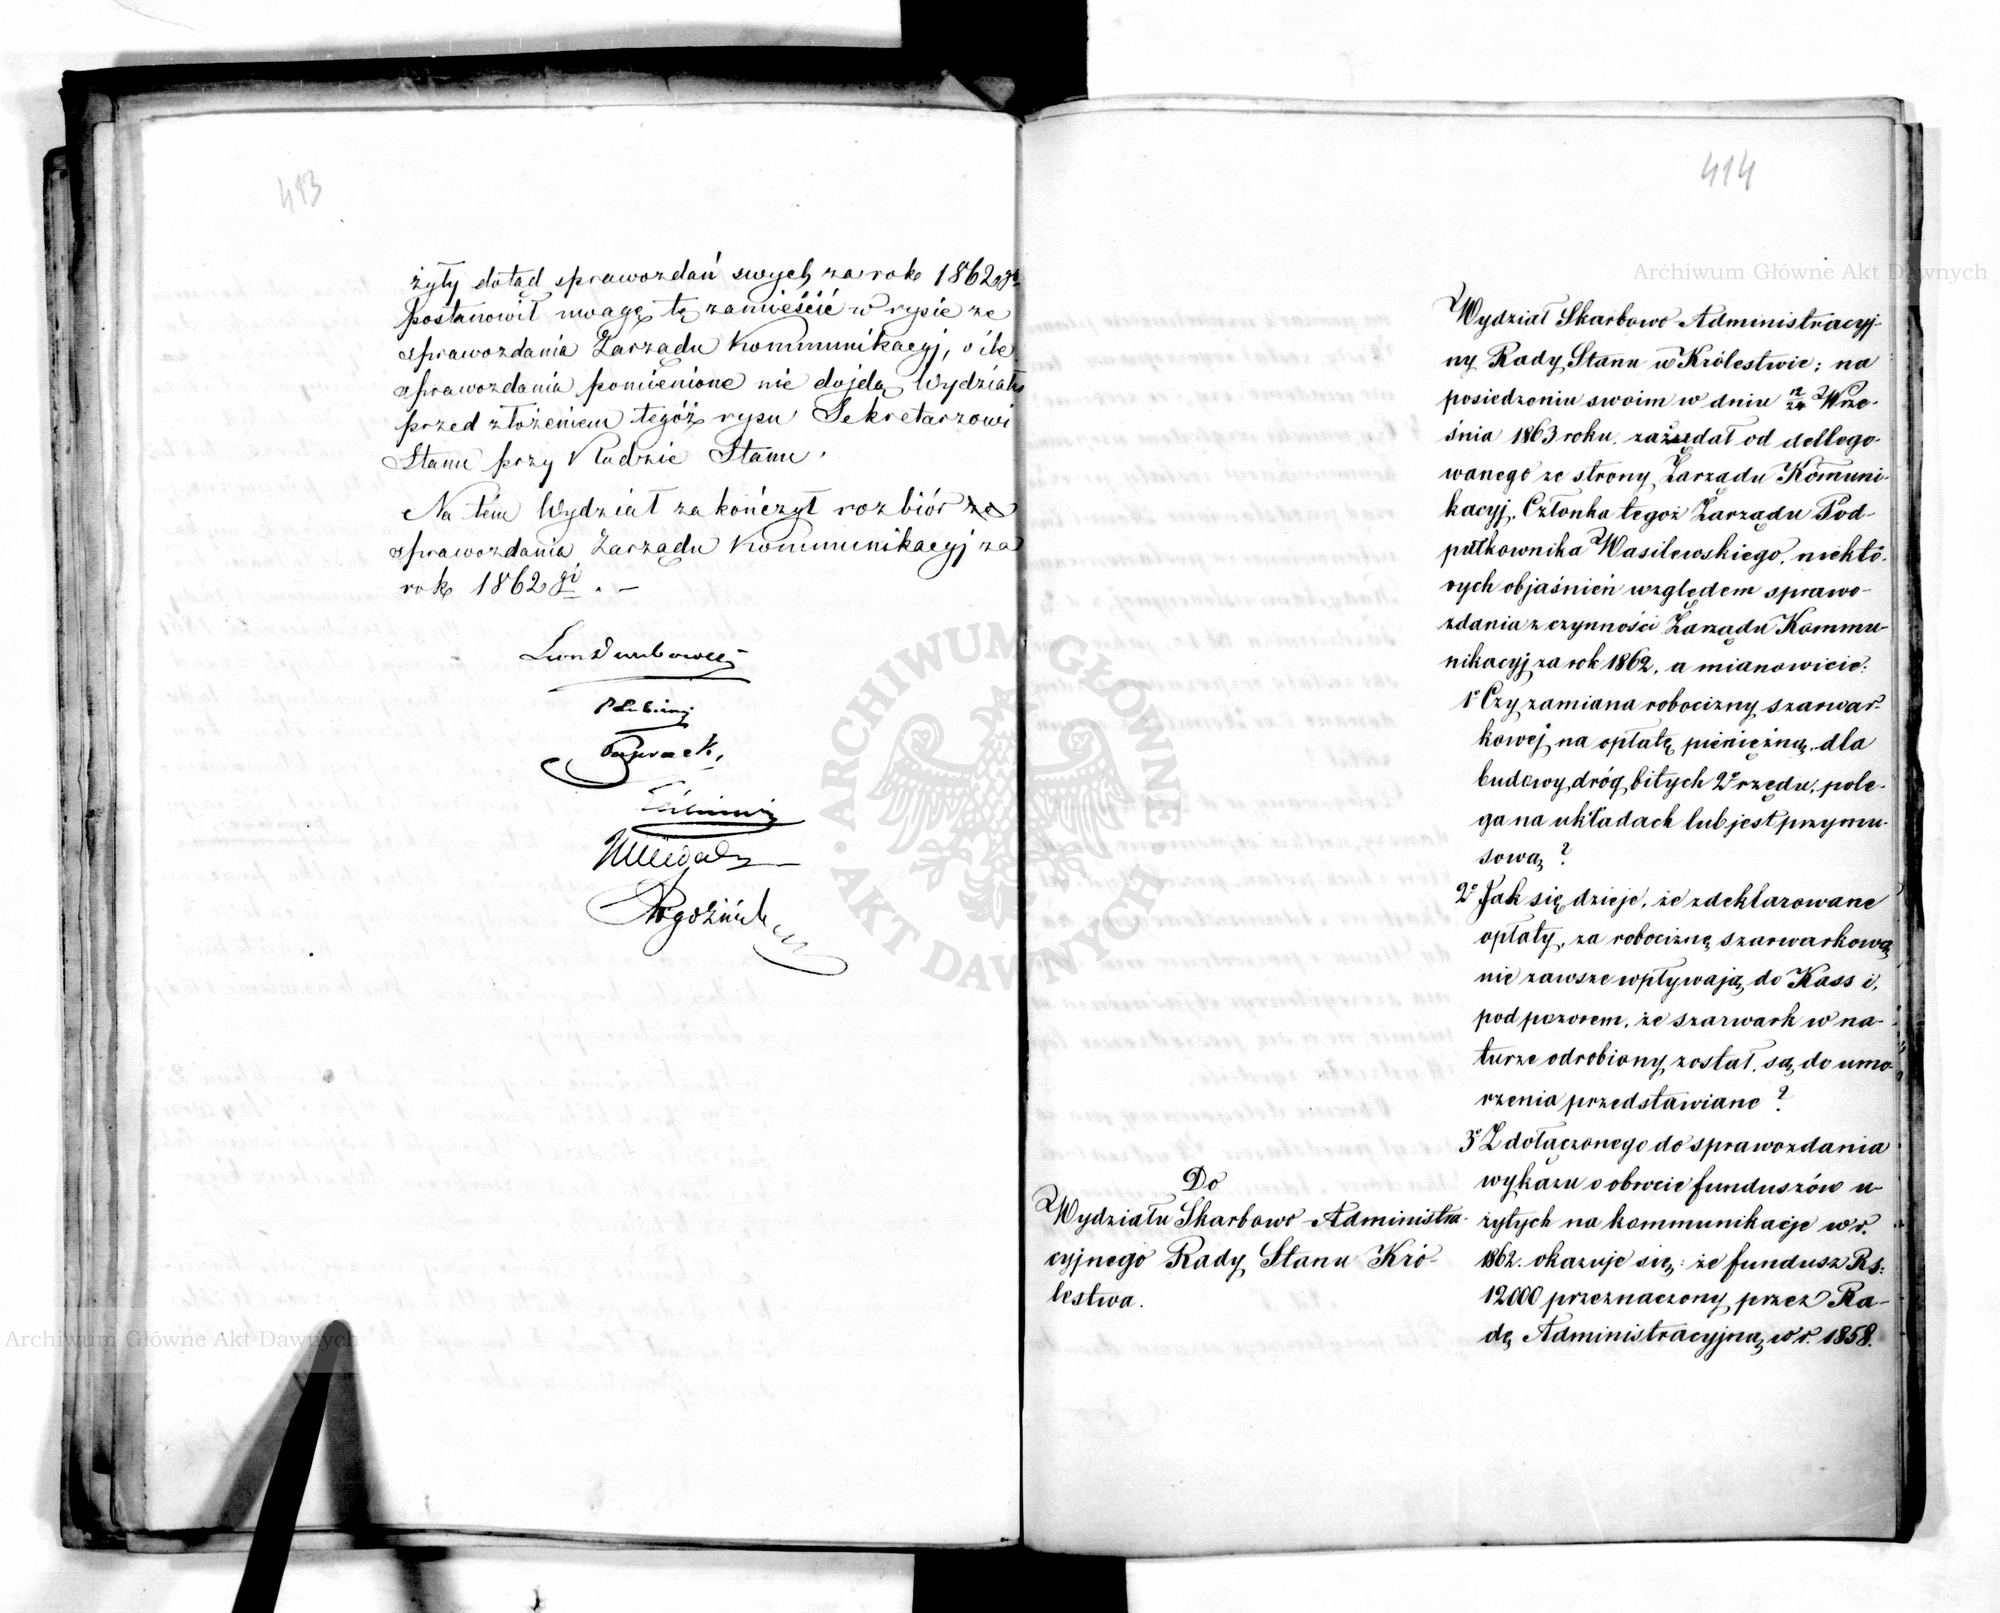 413
żyły dotąd sprawozdań swych za rok 1862 gi
postanowił uwagę tę zamieścić w rysie ze
sprawozdania Zarządu Kommunikacyj, o ile
sprawozdania pomienione nie dojdą Wydziału
przed złożeniem tegóż rysu Sekretarzowi
Stanu przy Radzie Stanu.
Na tém Wydział zakończył rozbiór ze
sprawozdania Zarządu Kommunikacyj za
rok 1862 gi . —
414
Wydział Skarbowo-Administracyj-
ny Rady Stanu w Królestwie; na
posiedzeniu swoim w dniu 12/24 Wrze-
śnia 1863 roku, zażądał od dellego-
wanego ze strony Zarządu Komuni-
kacyj, Członka tegoż Zarządu Pod-
pułkownika Wasilewskiego, niektó-
rych objaśnień względem sprawo-
zdania z czynności Zarządu Kommu-
nikacyj za rok 1862, a mianowicie:
1o Czy zamiana robocizny szarwar-
kowej na opłatę pieniężną, dla
budowy dróg bitych 2o rzędu, pole-
ga na układach lub jest przymu-
sową?
2o Jak się dzieje, że zdeklarowane
opłaty, za robociznę szarwarkową
nie zawsze wpływają do Kass i,
pod pozorem, że szarwark w na-
turze odrobiony został, są do umo-
rzenia przedstawiane?
3o Z dołączonego do sprawozdania
wykazu o obrocie funduszów u-
żytych na kommunikacje w r.
1862. okazuje się: że fundusz Rs:
12000 przeznaczony przez Ra-
dę Administracyjną w r. 1858.
Do
Wydziału Skarbowo-Administra-
cyjnego Rady Stanu Kró-
lestwa.
Archiwum Główne Akt Dawnych
ARCHIWUM GŁÓWNE
AKT DAWNYCH
Archiwum Główne Akt Dawnych